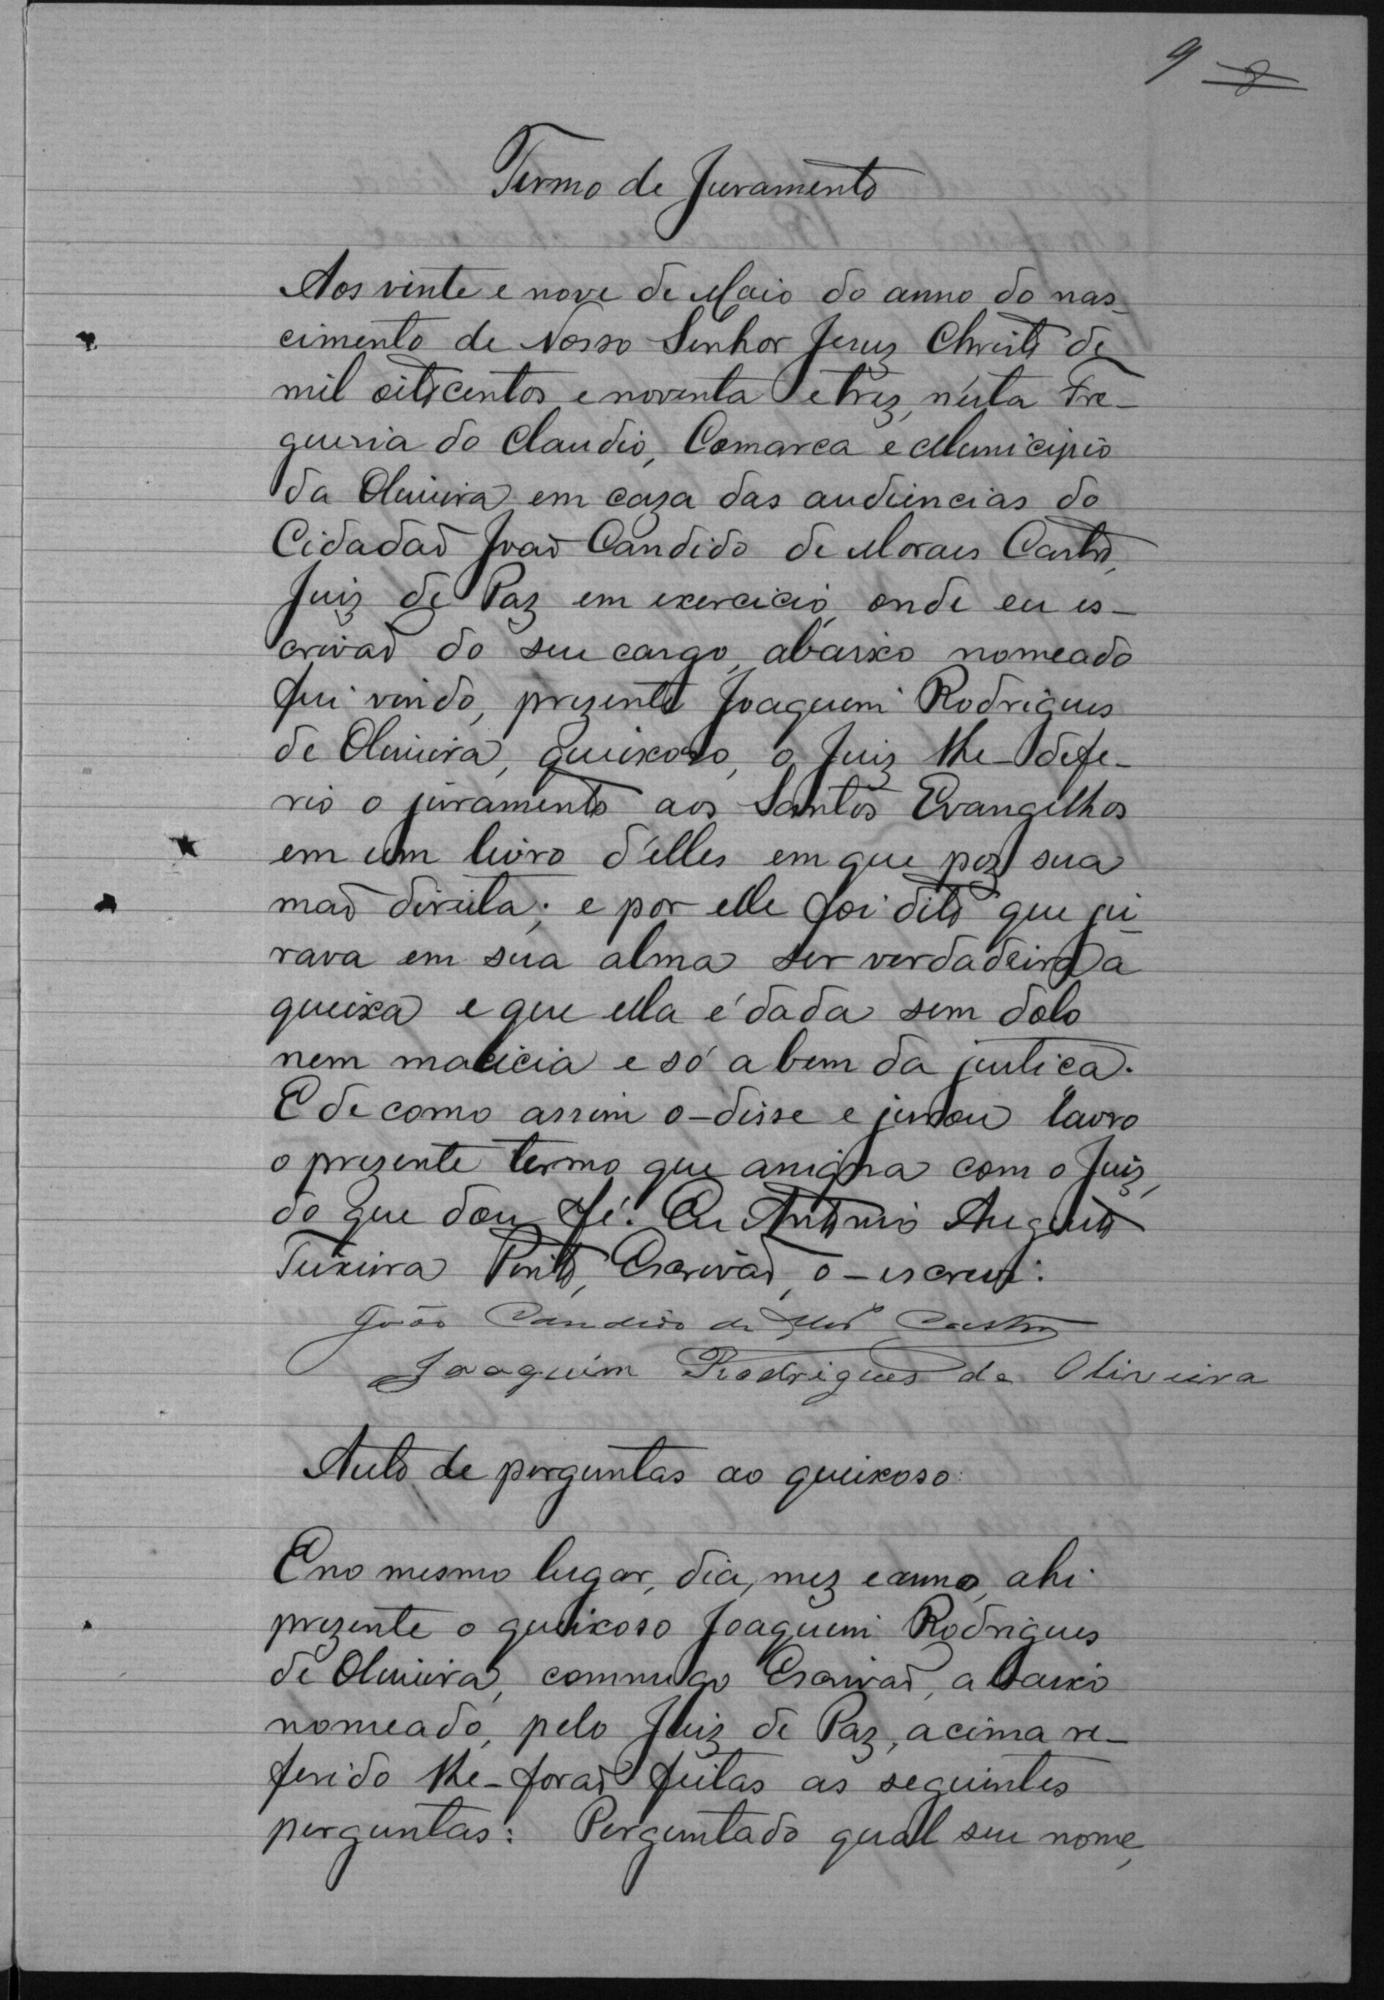 9 8
Termo de Juramento
Aos vinte e nove de Maio do anno do nas-
cimento de Nosso Senhor Jesuz Christo de
mil oitocentos e noventa e trez, nésta Fre-
guesia do Claudio, Comarca e Municipio
da Oliveira em caza das audiencias do
Cidadaõ Joaõ Candido de Moraes Castro,
Juiz de Paz em exercicio, onde eu es-
crivaõ do seu cargo, abaixo nomeado
fui vindo, prezente Joaquem Rodrigues
de Oliveira, queixoso, o Juiz lhe-defe-
rio o juramento aos Santos Evangelhos
em um livro d'elles em que poz sua
maõ direita; e por elle foi dito que ju-
rava em sua alma ser verdadeira a
queixa e que ella é dada sem dolo
nem malicia e só a bem da justiça.
E de como assim o-disse e jurou lavro
o prezente termo que assigna com o Juiz,
do que dou fé. Eu Antonio Augusto
Teixeira Pinto, Escrivaõ, o-escrevi.
João Candido de Mes Castro
Joaquim Rodrigues de Oliveira
Auto de perguntas ao queixoso:
E no mesmo lugar, dia, mez e anno, ahi
prezente o queixoso Joaquem Rodrigues
de Oliveira, commigo Escrivaõ, abaixo
nomeado, pelo Juiz de Paz, acima re-
ferido lhe-foraõ feitas as seguintes
perguntas: Perguntado qual seu nome,